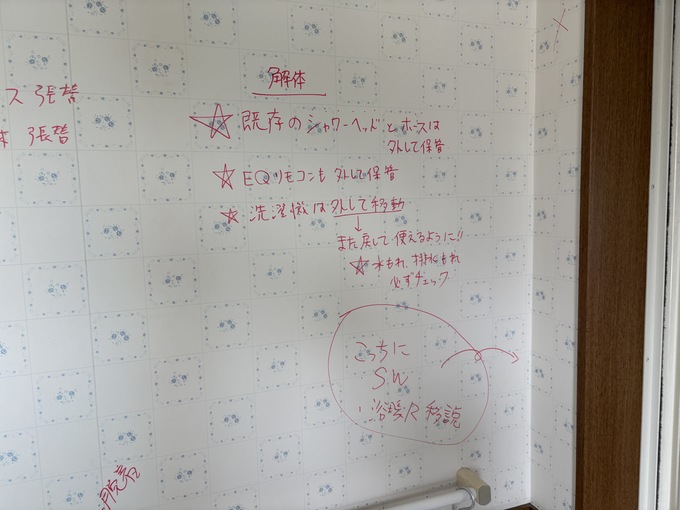 解体
ス張替
張替
☆既存のシャワーヘッドとホースは
外して保管
☆EQリモコンも外して保管
☆洗濯機は外して移動
↓
また戻して使えるように!!
☆水もれ、排水もれ
必ずチェック
こっちに
SW
浴暖R移設